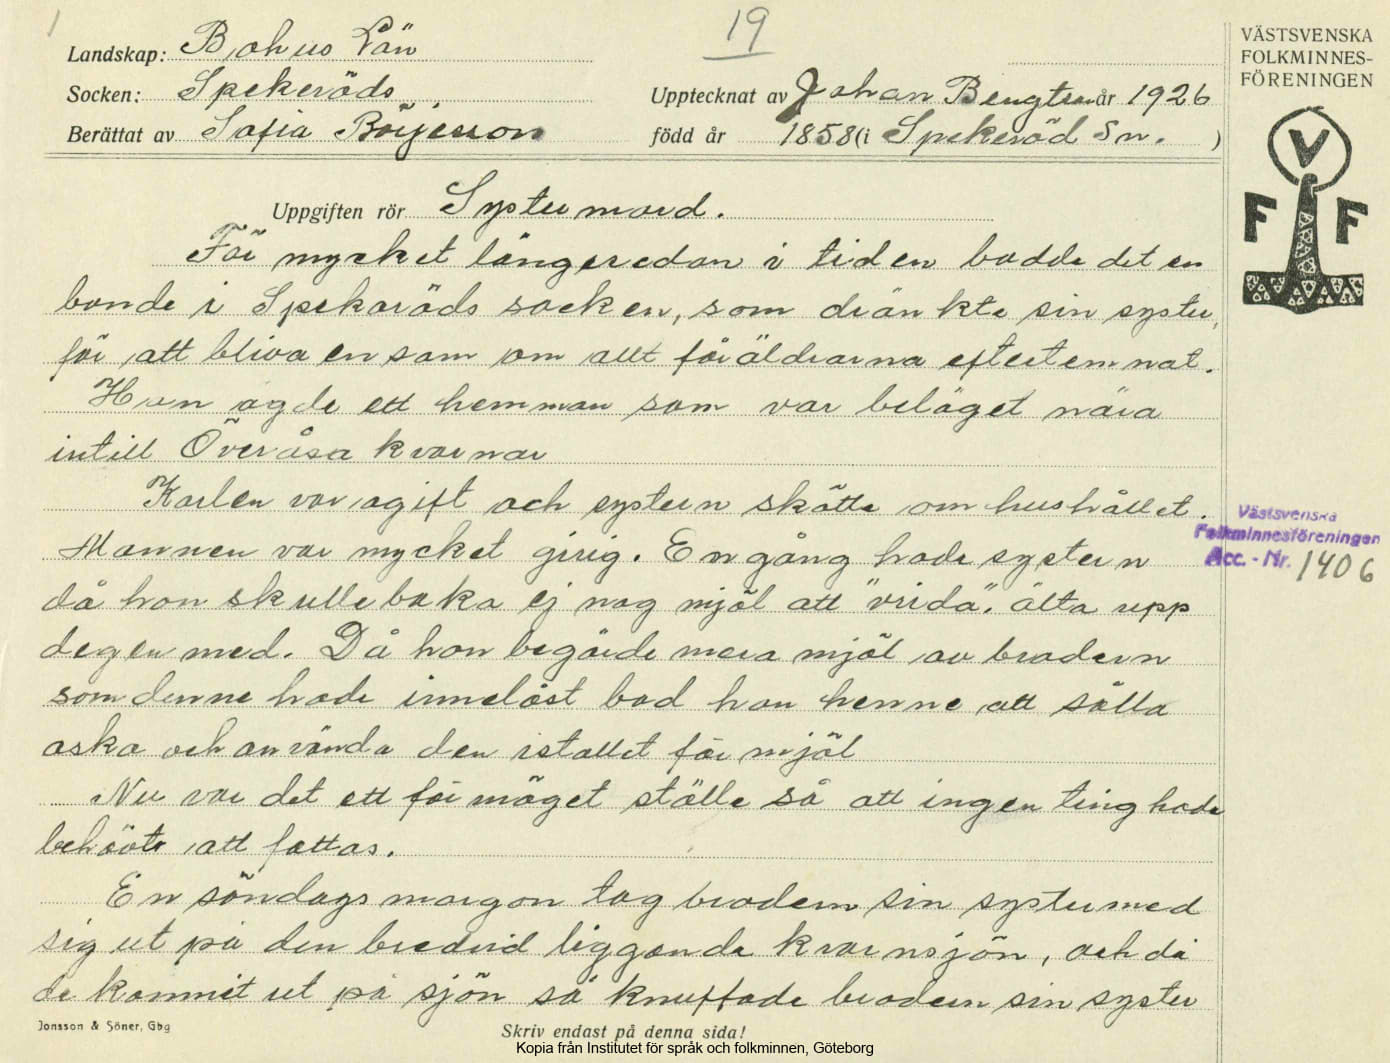 1
19
Landskap: Bohus Län
Socken: Spekeröds
Upptecknat av Johan Bengtson år 1926
Berättat av Sofia Börjesson
född år 1858 (i Spekeröd Sn. )
VÄSTSVENSKA
FOLKMINNES-
FÖRENINGEN
V
F F
Uppgiften rör Systermord.
För mycket längesedan i tiden bodde det en
bonde i Spekeröds socken, som dränkte sin syster,
för att bliva ensam om allt föräldrarna efterlemnat.
Han ägde ett hemman som var beläget nära
intill Överåsa kvarnar
Karlen var ogift och systern skötte om hushållet.
Mannen var mycket girig. En gång hade systern
då hon skulle baka ej nog mjöl att "vrida", älta upp
degen med. Då hon begärde mera mjöl av brodern
som denne hade innelåst bad han henne att sålla
aska och använda den istället för mjöl
Nu var det ett förmöget ställe så att ingenting hade
behövts att fattas.
En söndagsmorgon tog brodern sin syster med
sig ut på den bredvid liggande kvarnsjön, och då
de kommit ut på sjön så knuffade brodern sin syster
Västsvenska
Folkminnesföreningen
Acc. - Nr. 1406
Jonsson & Söner, Gbg
Skriv endast på denna sida!
Kopia från Institutet för språk och folkminnen, Göteborg